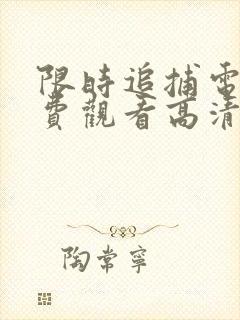 限時追捕電
費觀看高清
陶常寧